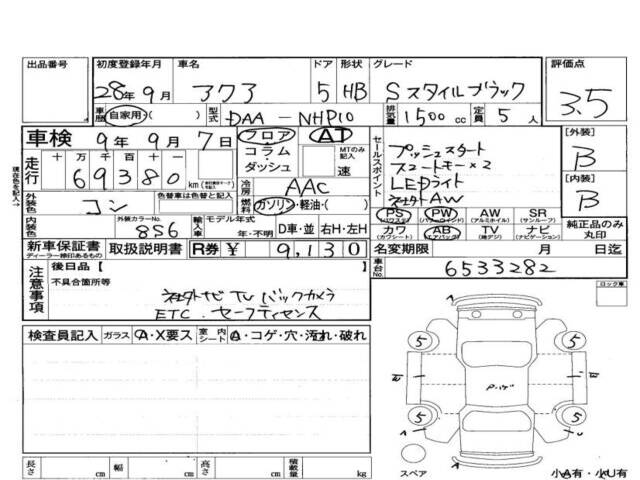 出品番号 初度登録年月 車名 ドア 形状 グレード 評価点
28年9月 アクア 5 HB Sスタイルブラック 3.5
車歴 自家用・( ) 型式 DAA-NHP10 排気量 1500cc 定員 5人
車検 9年9月7日 フロア AT
コラム MTのみ記入
ダッシュ 速
走行 十万千百十 69380 km
現在色を記入→
外装色 車歴色は色替と記入 コン
冷房 AAC
燃料 ガソリン・軽油・( )
内装色 外装カラーNo. 8S6 輸入車 モデル年式 年・不明 D車・並 右H・左H
セールスポイント
プッシュスタート
スマートキー×2
LEDライト
社外AW
PS (パワステ) PW (パワーウインド) AW (アルミホイル) SR (サンルーフ)
カワ (カワシート) AB (エアバック) TV (地デジ) ナビ (ナビゲーション)
[外装] B
[内装] B
純正品のみ丸印
新車保証書 ディーラー捺印あるもの 取扱説明書 R券 ¥ 9,130 名変期限 月 日迄
注意事項 後日品【 】 車台No. 6533282
不具合箇所等
社外ナビ TV バックカメラ
ETC. セーフティセンス
ロック車
検査員記入 ガラス A・X要ス 室内シート A・コゲ・穴・汚れ・破れ
5 5
P.
5 5
スペア
長さ cm 幅 cm 高さ cm 積載量 kg
小A有・小U有